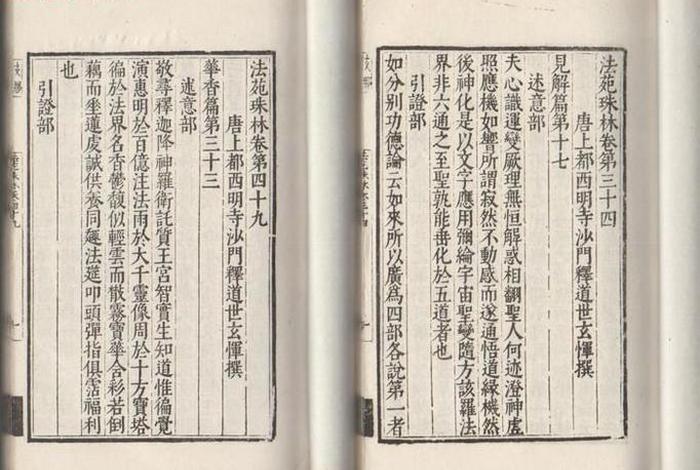 法苑珠林卷第三十四
唐上都西明寺沙門釋道世玄惲撰
見解篇第十七
述意部
夫心識運變厥理無恒解惑相翻聖人何迹澄神虛
照應機如響所謂寂然不動感而遂通悟道緣機然
後神化是以文字應用彌綸宇宙聖變隨方該羅法
界非六通之至聖孰能垂化於五道者也
引證部
如分別功德論云如來所以廣爲四部各說第一者
法苑珠林卷第四十九
唐上都西明寺沙門釋道世玄惲撰
華香篇第三十三
述意部
敬尋釋迦降神羅衛託質王宮智實生知道惟徧覺
演惠明於百億注法雨於大千靈像周於十方寶塔
徧於法界名香鬱馥似輕雲而散霧寶華含彩若倒
藕而坐蓮虔誠供養同趨法筵叩頭彈指俱霑福利
也
引證部